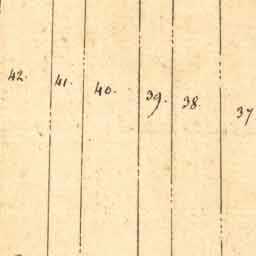 42. 41. 40. 39. 38. 37